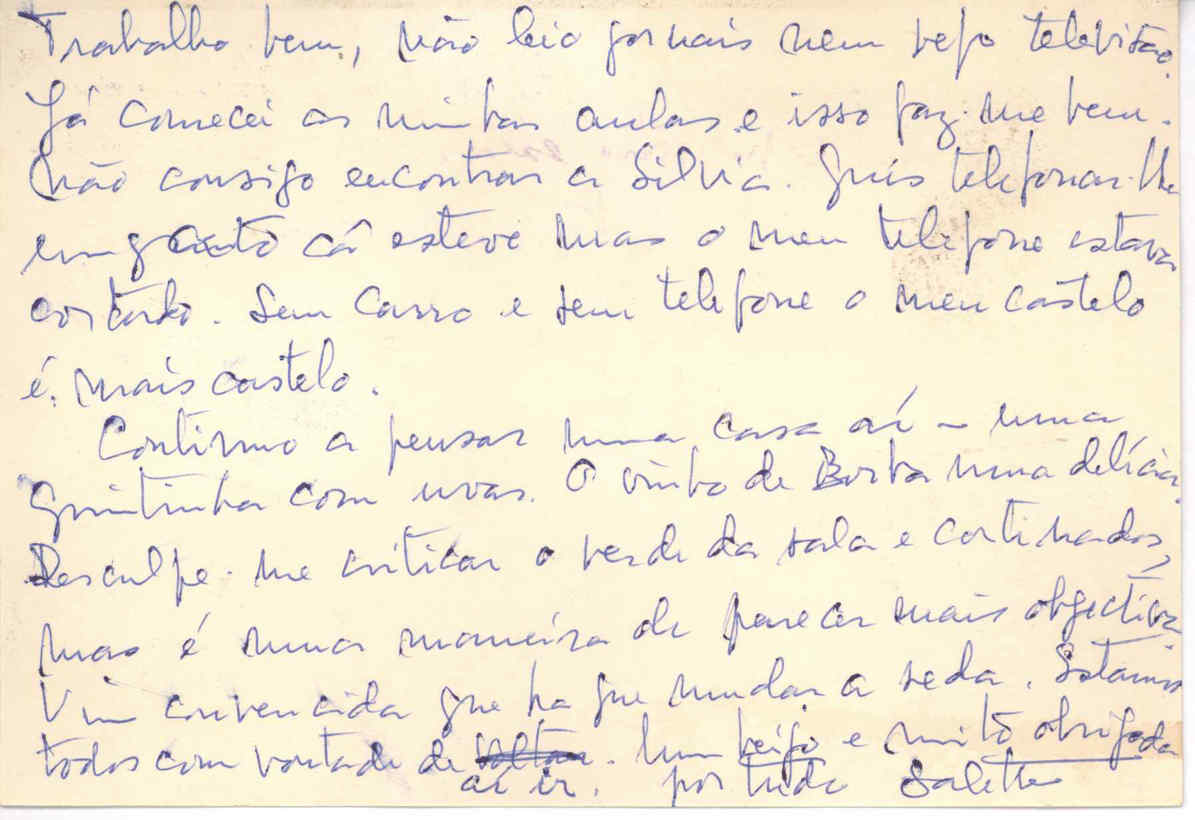 Trabalho bem, não leio jornais nem vejo televisão.
Já comecei as minhas aulas e isso faz-me bem.
Não consigo encontrar a Silvia. Quis telefonar-lhe
enquanto cá esteve mas o meu telefone estava
cortado. Sem carro e sem telefone o meu castelo
é mais castelo.
Continuo a pensar numa casa aí – uma
quintinha com uvas. O vinho de Borba uma delícia.
Desculpe-me criticar o verde da sala e cortinados,
mas é uma maneira de parecer mais objectiva
Vim convencida que ha que mudar a seda. Estamos
todos com vontade de voltar. Um beijo e muito obrigada
aí ir. por tudo Salette